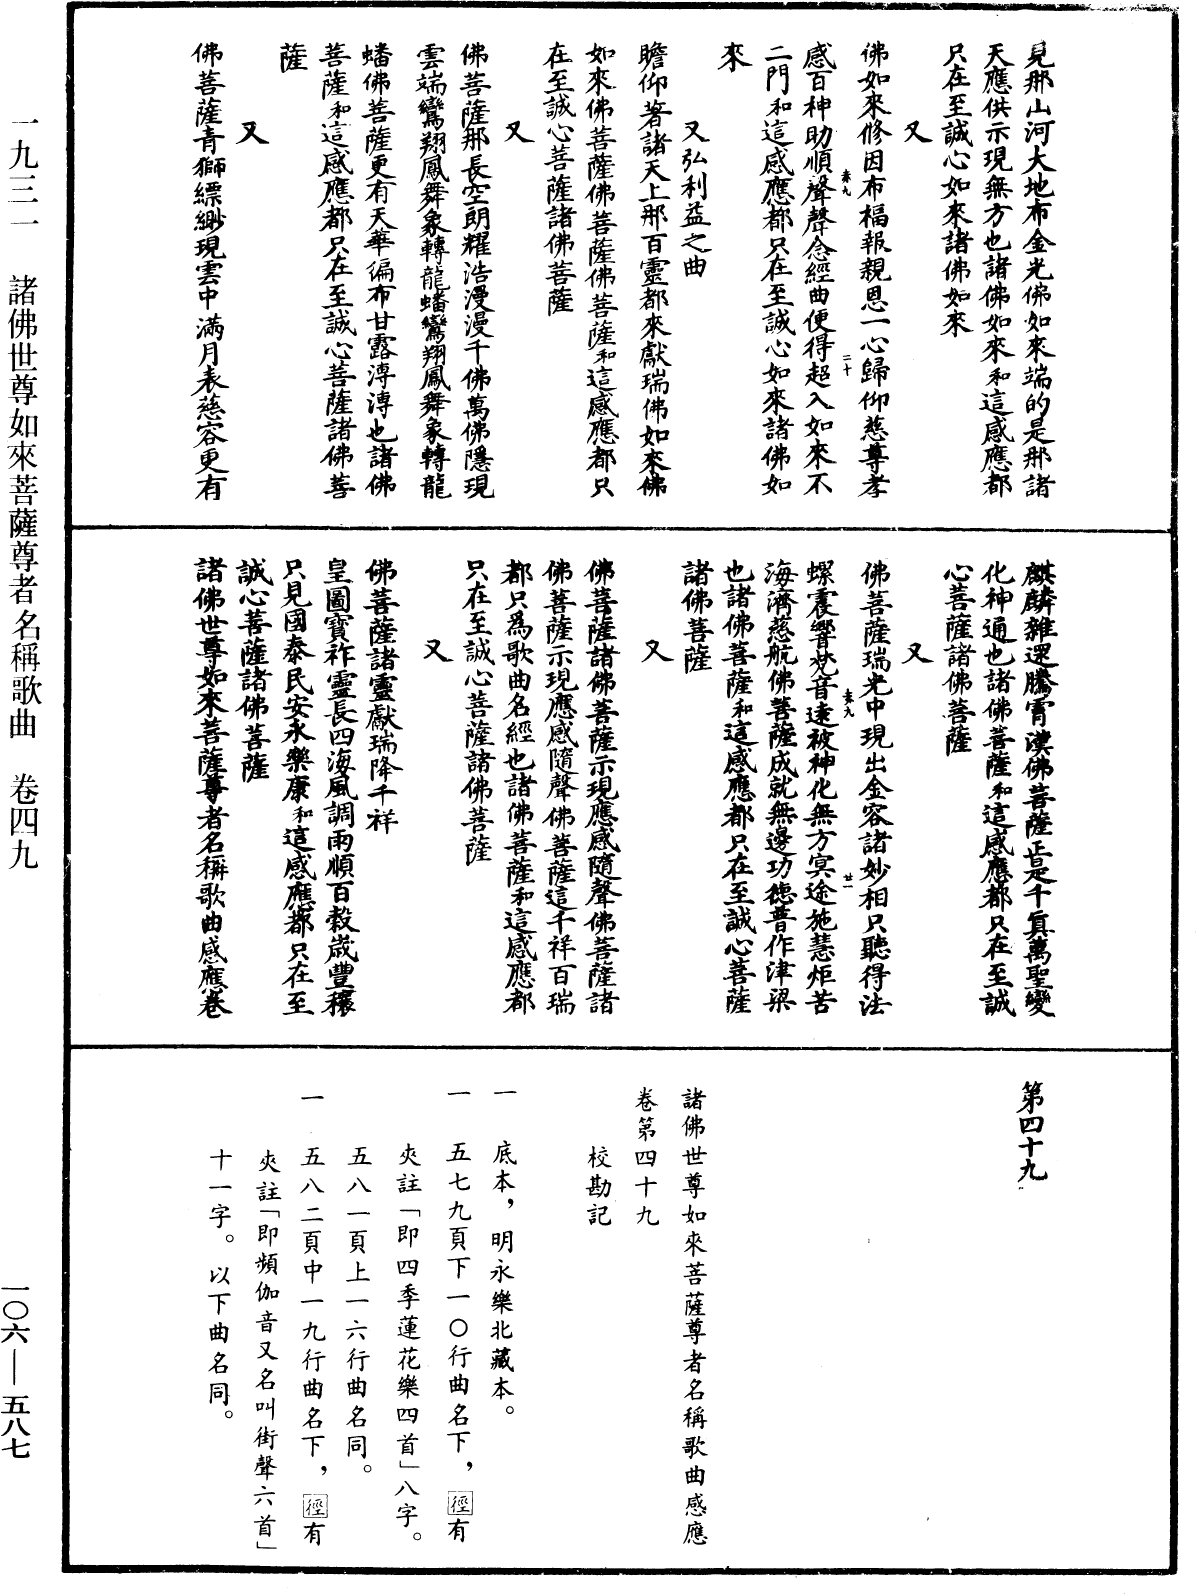 一九三一　諸佛世尊如來菩薩尊者名稱歌曲　卷四九
一〇六—五八七
見那山河大地布金光佛如來端的是那諸
天應供示現無方也諸佛如來和這感應都
只在至誠心如來諸佛如來
又
佛如來修因布福報親恩一心歸仰慈尊孝
感百神助順聲聲念經曲便得超入如來不
二門和這感應都只在至誠心如來諸佛如
來
又弘利益之曲
瞻仰著諸天上那百靈都來獻瑞佛如來佛
如來佛菩薩佛菩薩佛菩薩和這感應都只
在至誠心菩薩諸佛菩薩
又
佛菩薩那長空朗耀浩漫漫千佛萬佛隱現
雲端鸞翔鳳舞象轉龍蟠鸞翔鳳舞象轉龍
蟠佛菩薩更有天華徧布甘露溥溥也諸佛
菩薩和這感應都只在至誠心菩薩諸佛菩
薩
又
佛菩薩青獅縹緲現雲中滿月表慈容更有
麒麟雜遝騰霄漢佛菩薩正是千眞萬聖變
化神通也諸佛菩薩和這感應都只在至誠
心菩薩諸佛菩薩
又
佛菩薩瑞光中現出金容諸妙相只聽得法
螺震響梵音遠被神化無方冥途施慧炬苦
海濟慈航佛菩薩成就無邊功德普作津梁
也諸佛菩薩和這感應都只在至誠心菩薩
諸佛菩薩
又
佛菩薩諸佛菩薩示現應感隨聲佛菩薩諸
佛菩薩示現應感隨聲佛菩薩這千祥百瑞
都只為歌曲名經也諸佛菩薩和這感應都
只在至誠心菩薩諸佛菩薩
又
佛菩薩諸靈獻瑞降千祥
皇圖寶祚靈長四海風調雨順百穀歲豐穰
只見國泰民安永樂康和這感應都只在至
誠心菩薩諸佛菩薩
諸佛世尊如來菩薩尊者名稱歌曲感應卷
第四十九
諸佛世尊如來菩薩尊者名稱歌曲感應
卷第四十九
校勘記
一　底本，明永樂北藏本。
一　五七九頁下一〇行曲名下，徑有
夾註「即四季蓮花樂四首」八字。
五八一頁上一六行曲名同。
一　五八二頁中一九行曲名下，徑有
夾註「即頻伽音又名叫街聲六首」
十一字。以下曲名同。